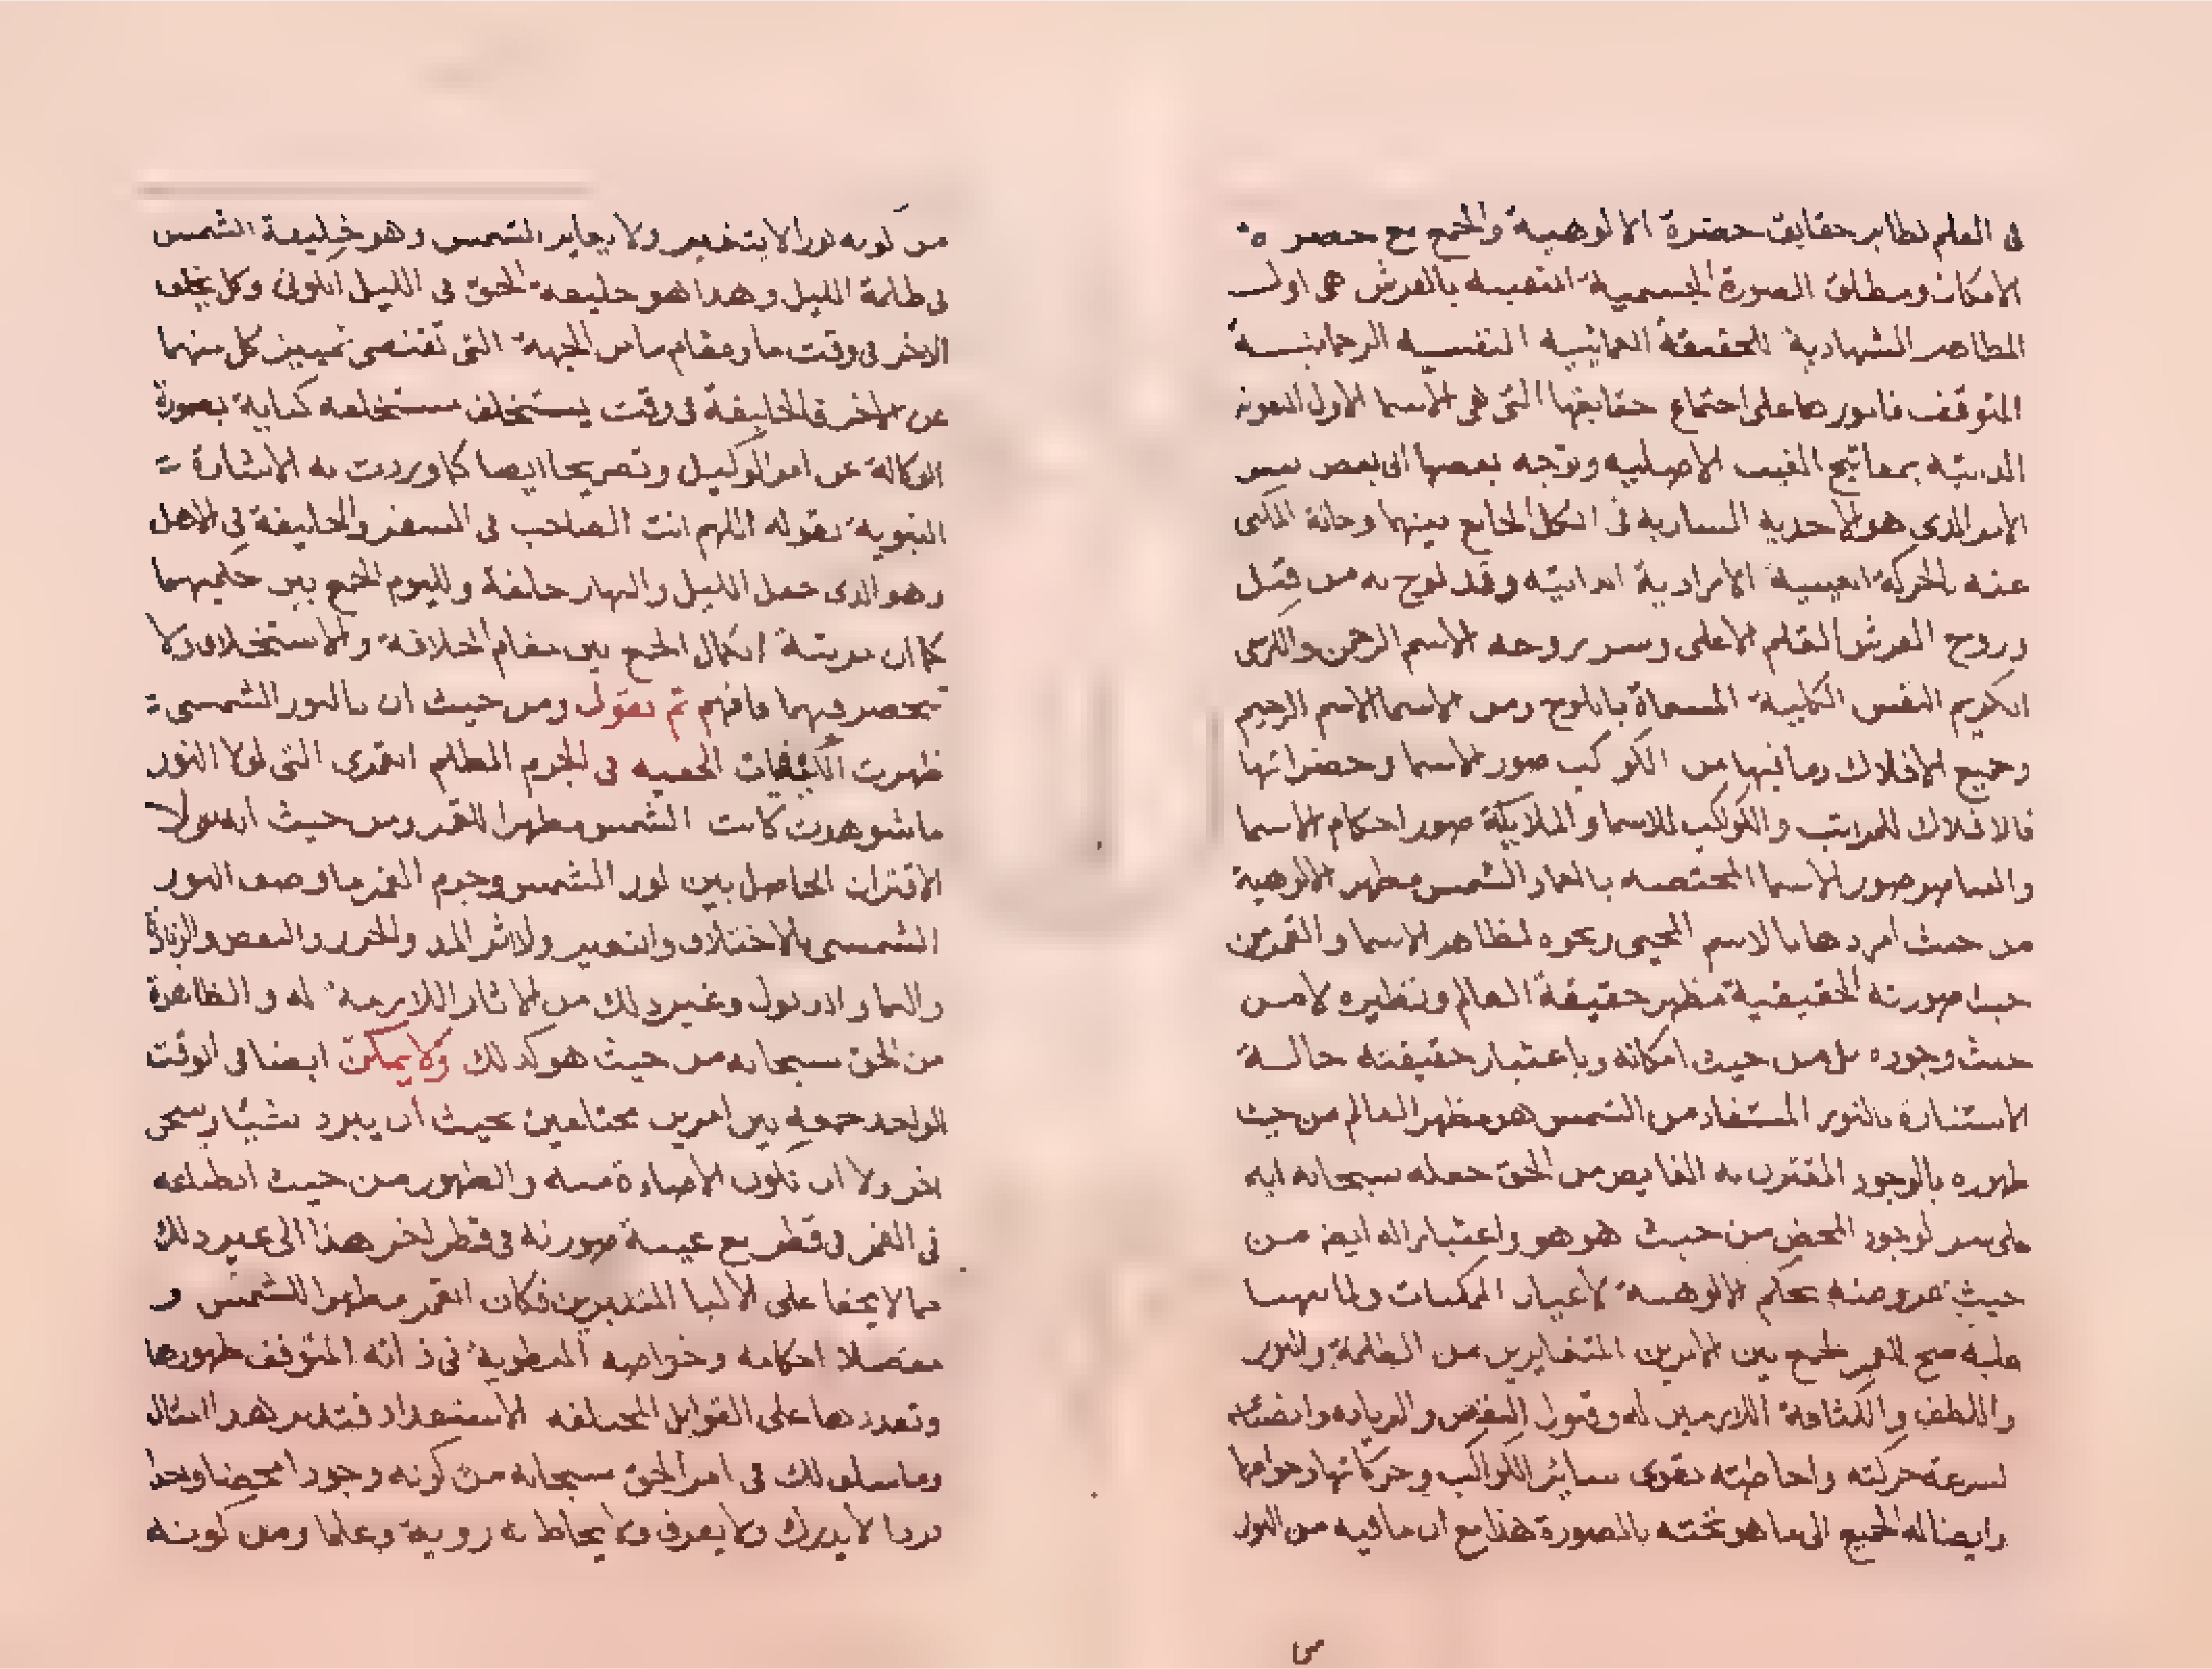 في العلم نظاير حقايق حضرة الالوهية والجمع مع حصر
الامكان ومطلق الصورة الجسمية بالعرش هى اول
المظاهر الشهادية للحقيقة العمائيه النفسيه الرحمانيه
المتوقف ظهورها على اجتماع حقايقها التى هى الاسما الاول
بمفاتيح الغيب الاصليه وتوجه بعضها الى بعض بسر
الامر الذى هو الاحديه الساريه فى الكل الجامع بينها وحالة المكنى
عنه بالحركة الغيبية الارادية وقد لوح به من قبل
وروح العرش القلم الاعلى وسر روحه الاسم الرحمن والكرسى
الكريم النفس الكلية المسماة باللوح ومن الاسما الاسم الرحيم
وجميع الافلاك وما فيها من الكواكب صور الاسما وحضراتها
فالافلاك للمراتب والكواكب للاسما والملايكة صور احكام الاسما
والعناصر صور الاسما المختصه بالعماء والشمس مظهر الالوهية
من حيث امدادها بالاسم المحيى ونحوه لمظاهر الاسما والقمر من
حيث صورته الحقيقية مظهر حقيقة العالم ونظيره لا من
حيث وجوده بل من حيث امكانه وباعتبار حقيقته حالة
الاستنارة بالنور المستفاد من الشمس هو مظهر العالم من حيث
ظهوره بالوجود المقترن به الفايض من الحق جعله سبحانه اية
على سر الوجود المحض من حيث هو هو واعتباراته ايضا من
حيث عروضه بحكم الالوهية لاعيان الممكنات ولما
عليه صح للقمر الجمع بين الامرين المتغايرين من الظلمة والنور
واللطف والكثافة اللازمين له وقبول النقص والزياده
لسرعة حركته واحاطته بقوى ساير الكواكب وحركاتها وخواصها
وايصاله الجميع الى ما هو تحته بالصورة هذا مع ان ما فيه من النور
من كونه نورا لا يتغير ولا يغاير الشمس وهو خليفة الشمس
فى ظلمة الليل وهذا هو خليفة الحق فى الليل الكونى وكل يخلف
الاخر فى وقت ما ومقام ما من الجهة التى تقتضى تمييز كل منهما
عن الاخر فالخليفة فى وقت يستخلف مستخلفه كناية بصورة
الوكالة عن امر الوكيل وتصريحا ايضا كما وردت به الاشارة
النبوية بقوله اللهم انت الصاحب فى السفر والخليفة فى الاهل
وهو الذى جعل الليل والنهار خلفة ولليوم الجمع بين حكميهما
كما ان مرتبة الكمال الجمع بين مقام الخلافة والاستخلاف ولا
ينحصر فيهما فافهم ثم نقول ومن حيث ان بالنور الشمسى
ظهرت الكيفيات الخفيه فى الجرم المظلم القمرى التى لولا النور
ما شوهدت كانت الشمس مظهرا للقمر ومن حيث انه لولا
الاقتران الحاصل بين نور الشمس وجرم القمر ما وصف النور
الشمسى بالاختلاف والتغير ولا اثر المد والجزر والنقص والزيادة
والنما والذبول وغير ذلك من الاثار اللازمة له والظاهرة
من الحق سبحانه من حيث هو كذلك ولا يمكن ايضا فى الوقت
الواحد جمعه بين امرين مختلفين بحيث ان يبرد شيئا ويسخن
اخر ولا ان تكون الاضاءة منه والظهور من حيث انطباعه
فى القمر فى قطر مع غيبة صورته فى قطر اخر هذا الى غير ذلك
مما لا يخفا على الالبا المتدبرين فكان القمر مظهرا للشمس و
مفصلا احكامه وخواصه المطوية فى ذاته المتوقف ظهورها
وتعددها على القوابل المختلفه الاستعداد فتدبر هذا المثال
وما سلف لك فى امر الحق سبحانه من كونه وجودا محضا واحدا
فردا لا يدرك ولا يعرف ولا يحاط به روية وعلما ومن كونه